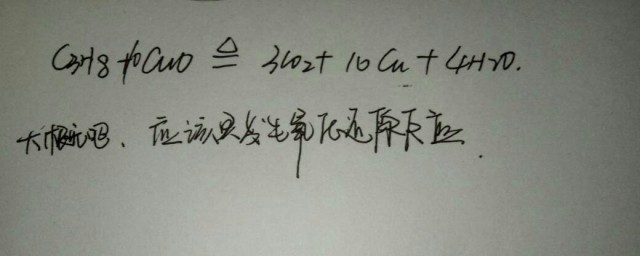 C3H8+10CuO ≜ 3CO2+10Cu+4H2O.
大概吧、应该只发生氧化还原反应.